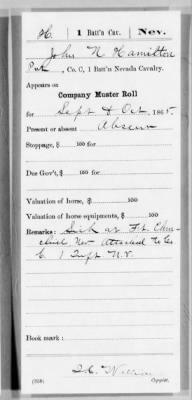 H. | 1 Batt'n Cav. | Nev.
John N. Hamilton
Pvt, Co. C, 1 Batt'n Nevada Cavalry.
Appears on
Company Muster Roll
for Sept & Oct, 1865.
Present or absent Absent
Stoppage, $ 100 for
Due Gov't, $ 100 for
Valuation of horse, $ 100
Valuation of horse equipments, $ 100
Remarks: Sick at Ft. Chu-
chill Nev Attached to Co
C. 1 Inft N.V.
Book mark:
(358) Copyist.